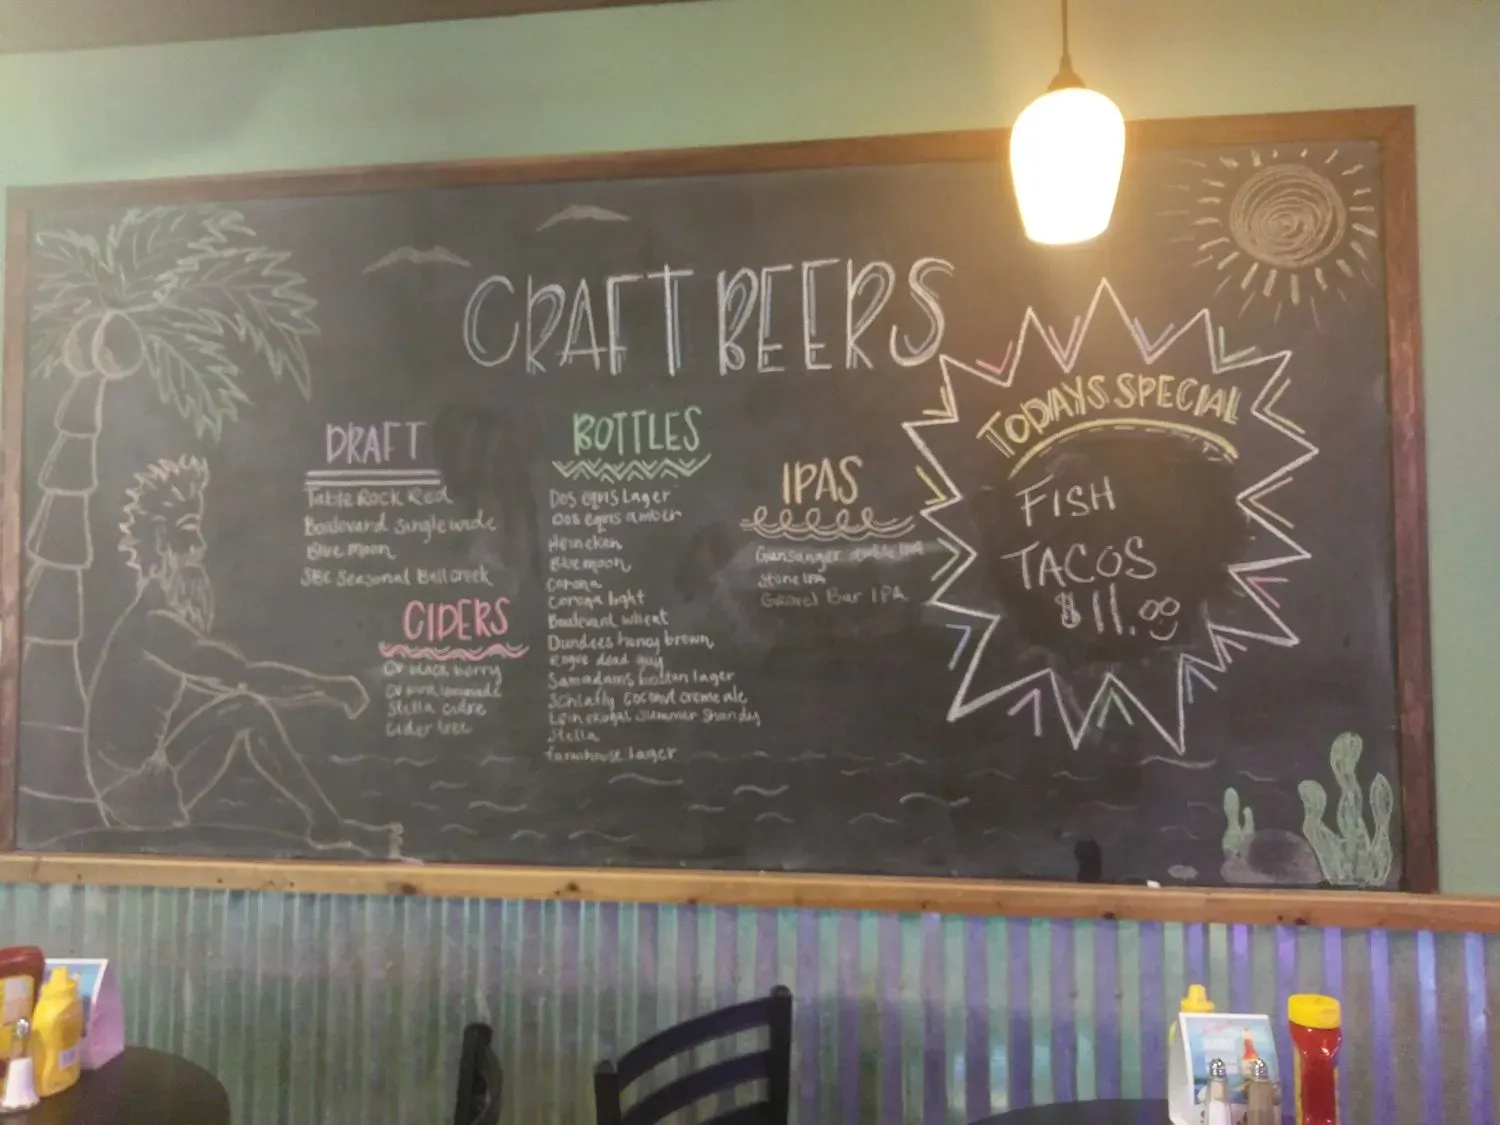 CRAFT BEERS
DRAFT
Table Rock Red
Boulevard singlewide
Blue Moon
SBC Seasonal Bell creek
CIDERS
black berry
Stella cidre
Cider tree
BOTTLES
Dos eqris Lager
Dos eqris amber
Heineken
Blue moon
Corona
Corona light
Boulevard wheat
Dundees honey brown
Rogue dead guy
Samadams bostan lager
Schlafly coconut creme ale
Summer Shandy
Stella
farmhouse lager
IPAS
double IPA
Stone IPA
Gravel Bar IPA
TODAYS SPECIAL
FISH
TACOS
$11.00